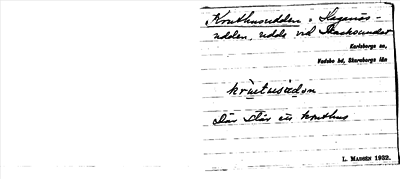 Kruthusudden, Sizenäs-
udden, udde vid Stacksundet
Karlsborgs sn,
Vadsbo hd, Skaraborgs län
krùtusùdən
Där står ett kruthus
L. MADSÉN 1932.